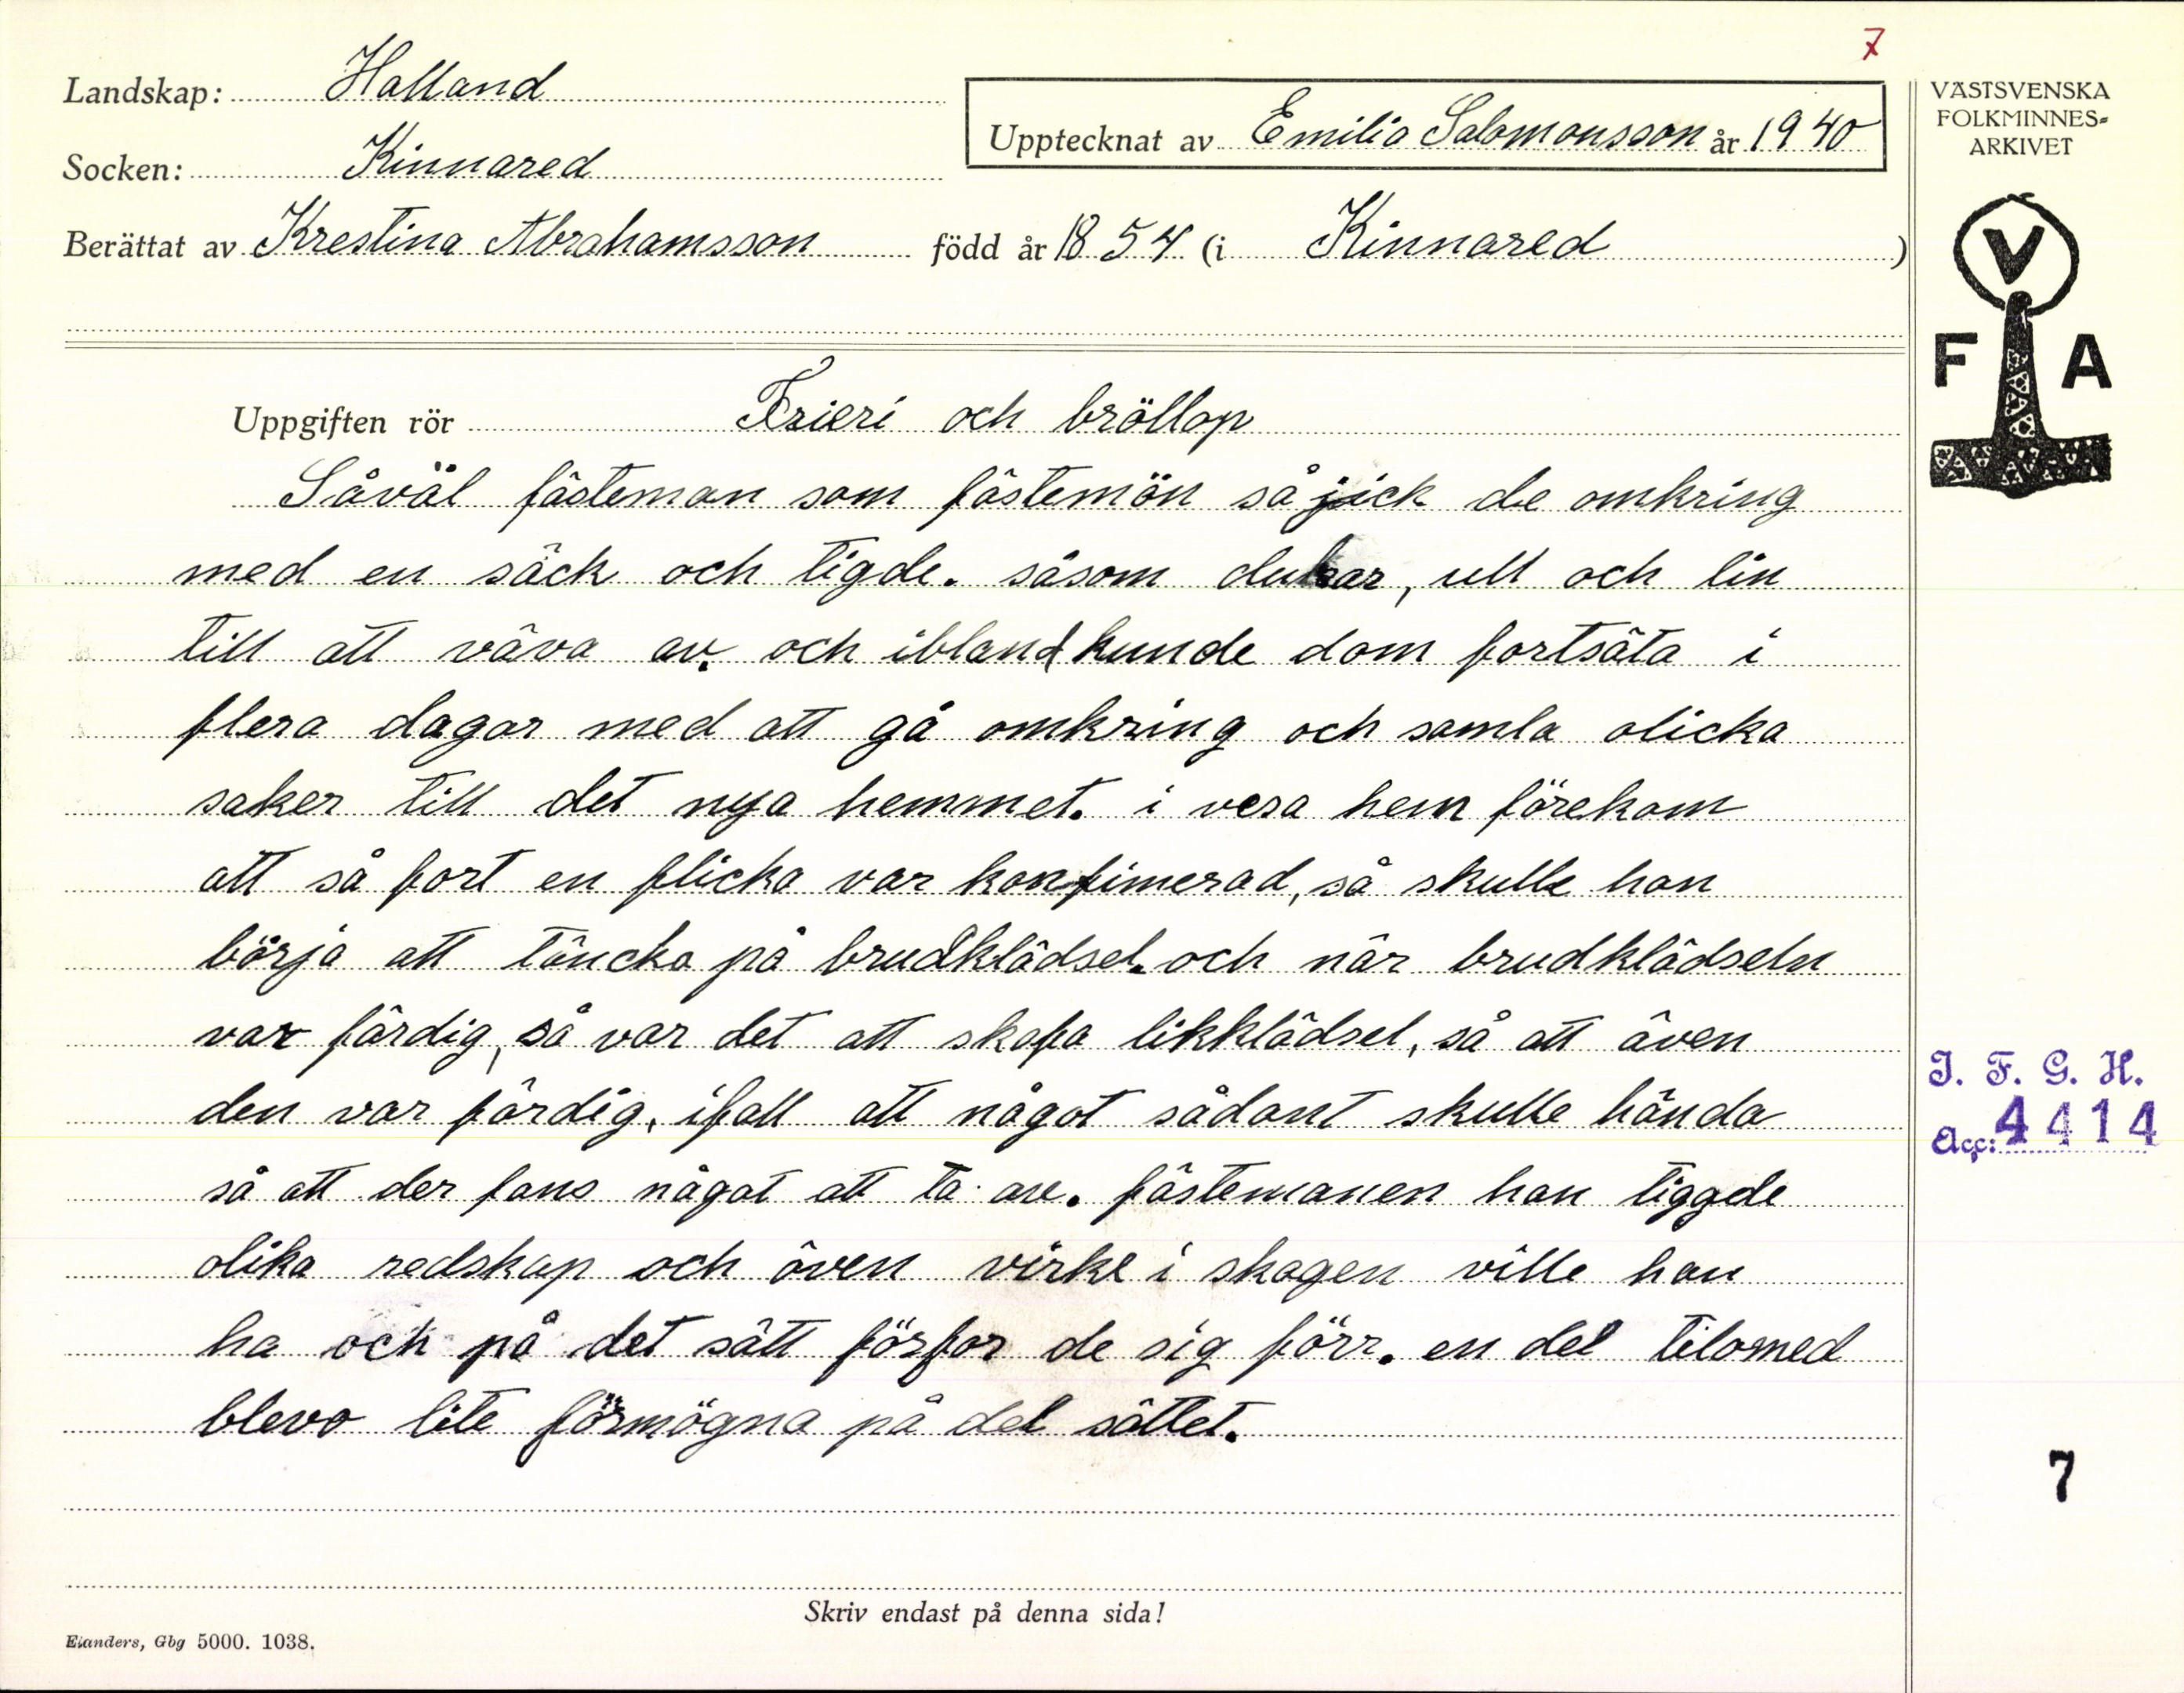 7
Landskap: Halland
Upptecknat av Emilia Salomonsson år 1940
Socken: Kinnared
Berättat av Krestina Abrahamsson född år 1854 (i Kinnared )
VÄSTSVENSKA
FOLKMINNES-
ARKIVET
V
F A
Uppgiften rör Frieri och bröllop
Såväl fästeman som fästemön så jick de omkring
med en säck och tigde. såsom dukar, ull och lin
till att väva av. och ibland kunde dom fortsäta i
flera dagar med att gå omkring och samla olicka
saker till det nya hemmet. i vesa hem förekom
att så fort en flicka var konfimerad, så skulle hon
börja att täncka på brudklädsel. och når brudklädseln
var färdig, så var det att skafa likklädsel, så att även
den var färdig, ifall att något sådant skulle hända
så att der fans något att ta av. fästemanen han tiggde
olika redskap och även virke i skogen ville han
ha och på det sätt förfor de sig förr. en del tilomed
blevo lite förmögna på det sättet.
I. F. G. H.
Acc: 4414
7
Skriv endast på denna sida!
Elanders, Gbg 5000. 1038.